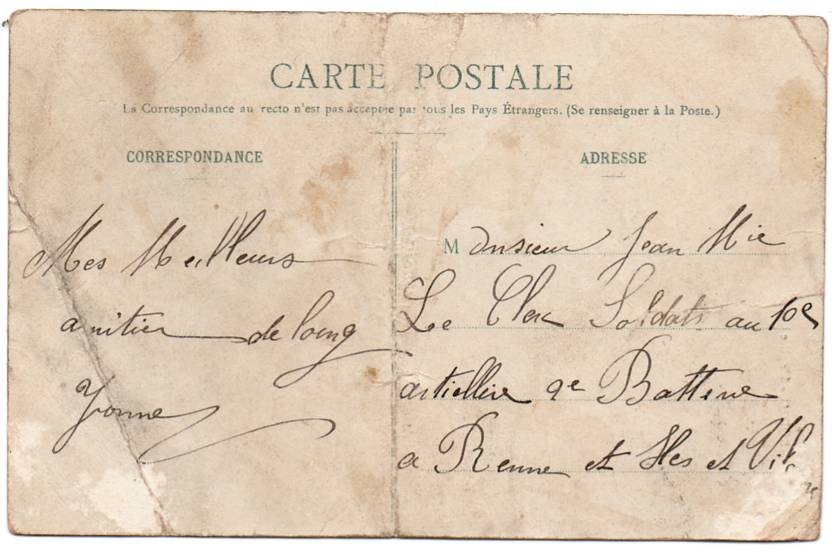 CARTE POSTALE
La Correspondance au recto n'est pas acceptée par tous les Pays Étrangers. (Se renseigner à la Poste.)
CORRESPONDANCE
ADRESSE
Mes Meilleurs
amitier de loing
Yvonne
Monsieur Jean Mie
Le Clerc Soldats au 10e
artiellire 9e Batterie
a Renne et Iles et Vil